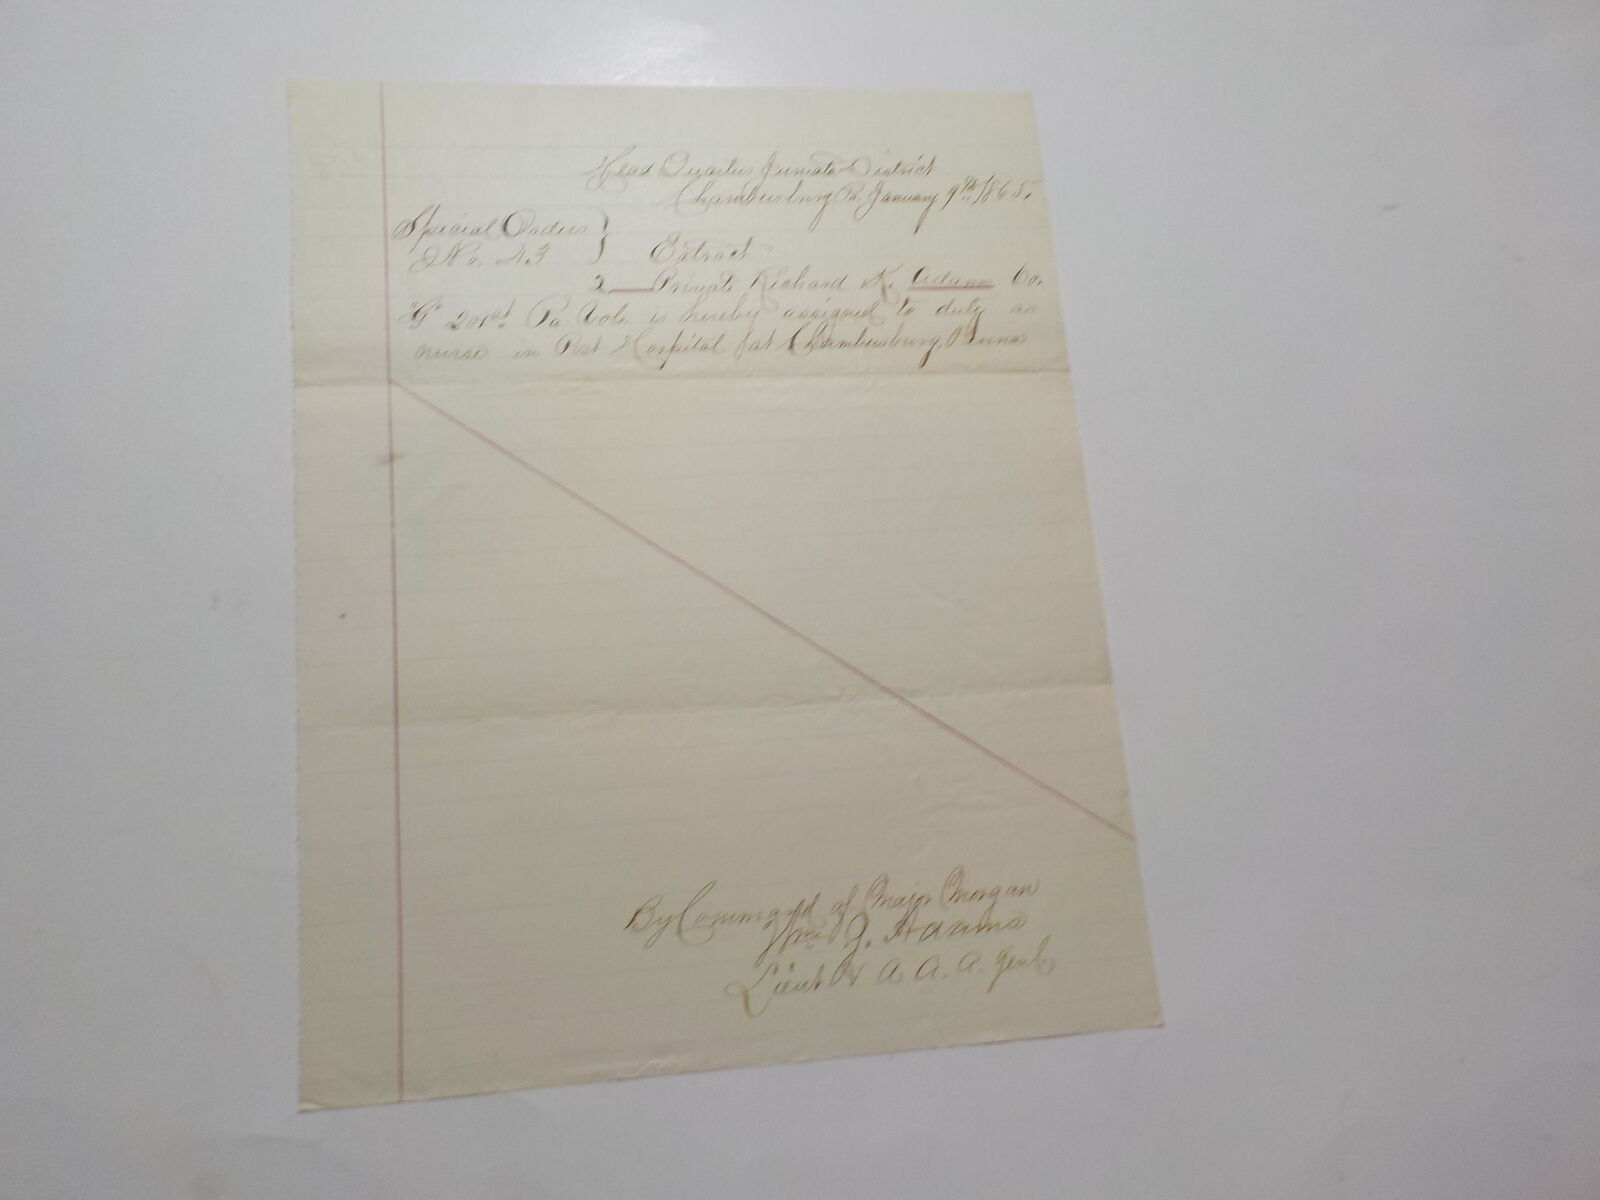 Head Quarters Juniata District
Chambersburg Pa. January 9th 1865.
Special Orders }
No. 43 } Extract
2 Private Richard K. Adams Co.
"G" 201st Pa Vols is hereby assigned to duty as
nurse in Post Hospital at Chambersburg, Penna
By Command of Major Morgan
Wm J.
Lieut & A. A. A. Genl